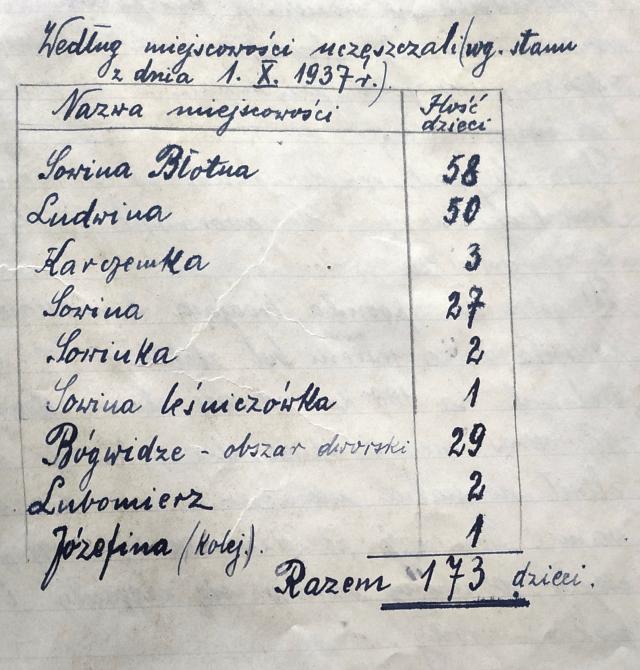 Według miejscowości uczęszczali (wg. stanu
z dnia 1. X. 1937 r.).
Nazwa miejscowości Ilość dzieci
Sowina Błotna 58
Ludwina 50
Karczemka 3
Sowina 27
Sowinka 2
Sowina leśniczówka 1
Bógwidze - obszar dworski 29
Lubomierz 2
Józefina (kolej.). 1
Razem 173 dzieci.